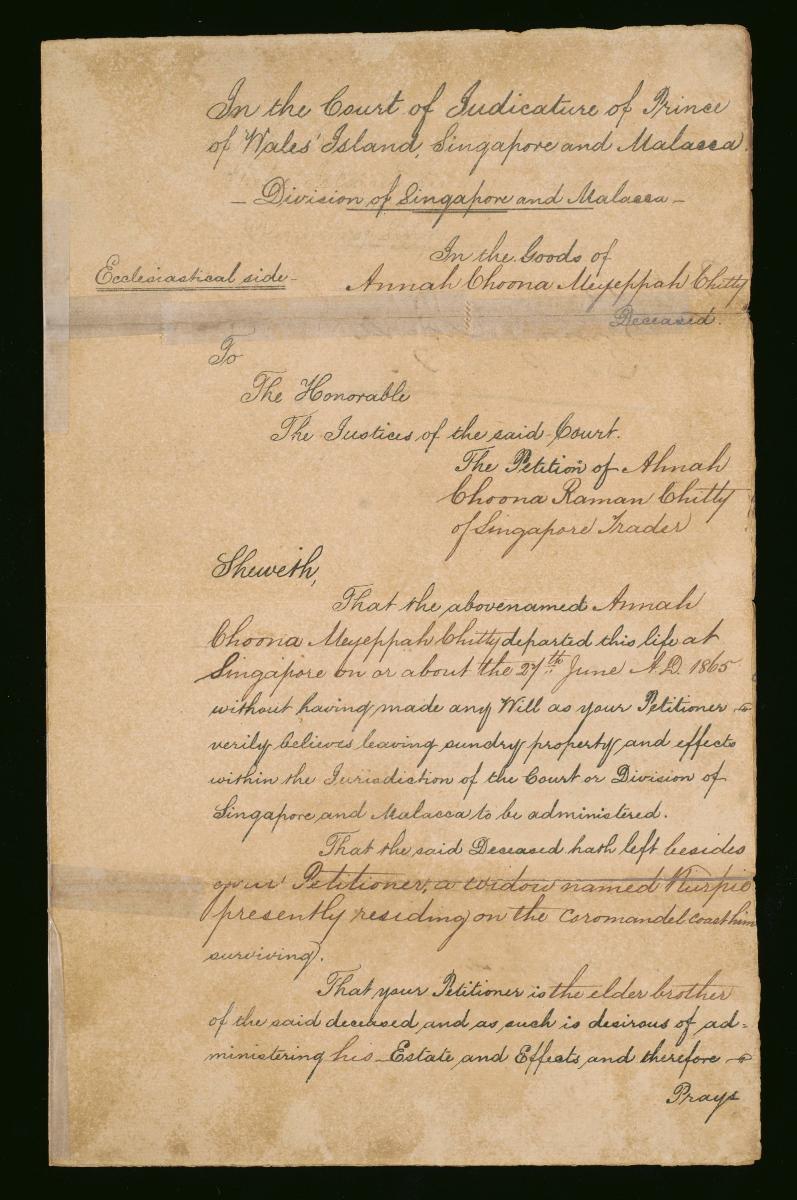 In the Court of Judicature of Prince
of Wales' Island, Singapore and Malacca.
– Division of Singapore and Malacca –
In the Goods of
Ecclesiastical side – Annah Choona Meyeppah Chitty
Deceased.
To
The Honorable
The Justices of the said Court.
The Petition of Ahnah
Choona Raman Chitty
of Singapore Trader
Sheweth,
That the abovenamed Annah
Choona Meyeppah Chitty departed this life at
Singapore on or about the 27th June A.D. 1865
without having made any Will as your Petitioner
verily believes leaving sundry property and effects
within the Jurisdiction of the Court or Division of
Singapore and Malacca to be administered.
That the said Deceased hath left besides
your Petitioner, a widow named
presently residing on the Coromandel coast him
surviving.
That your Petitioner is the elder brother
of the said deceased, and as such is desirous of ad=
ministering his Estate and Effects, and therefore
Prays